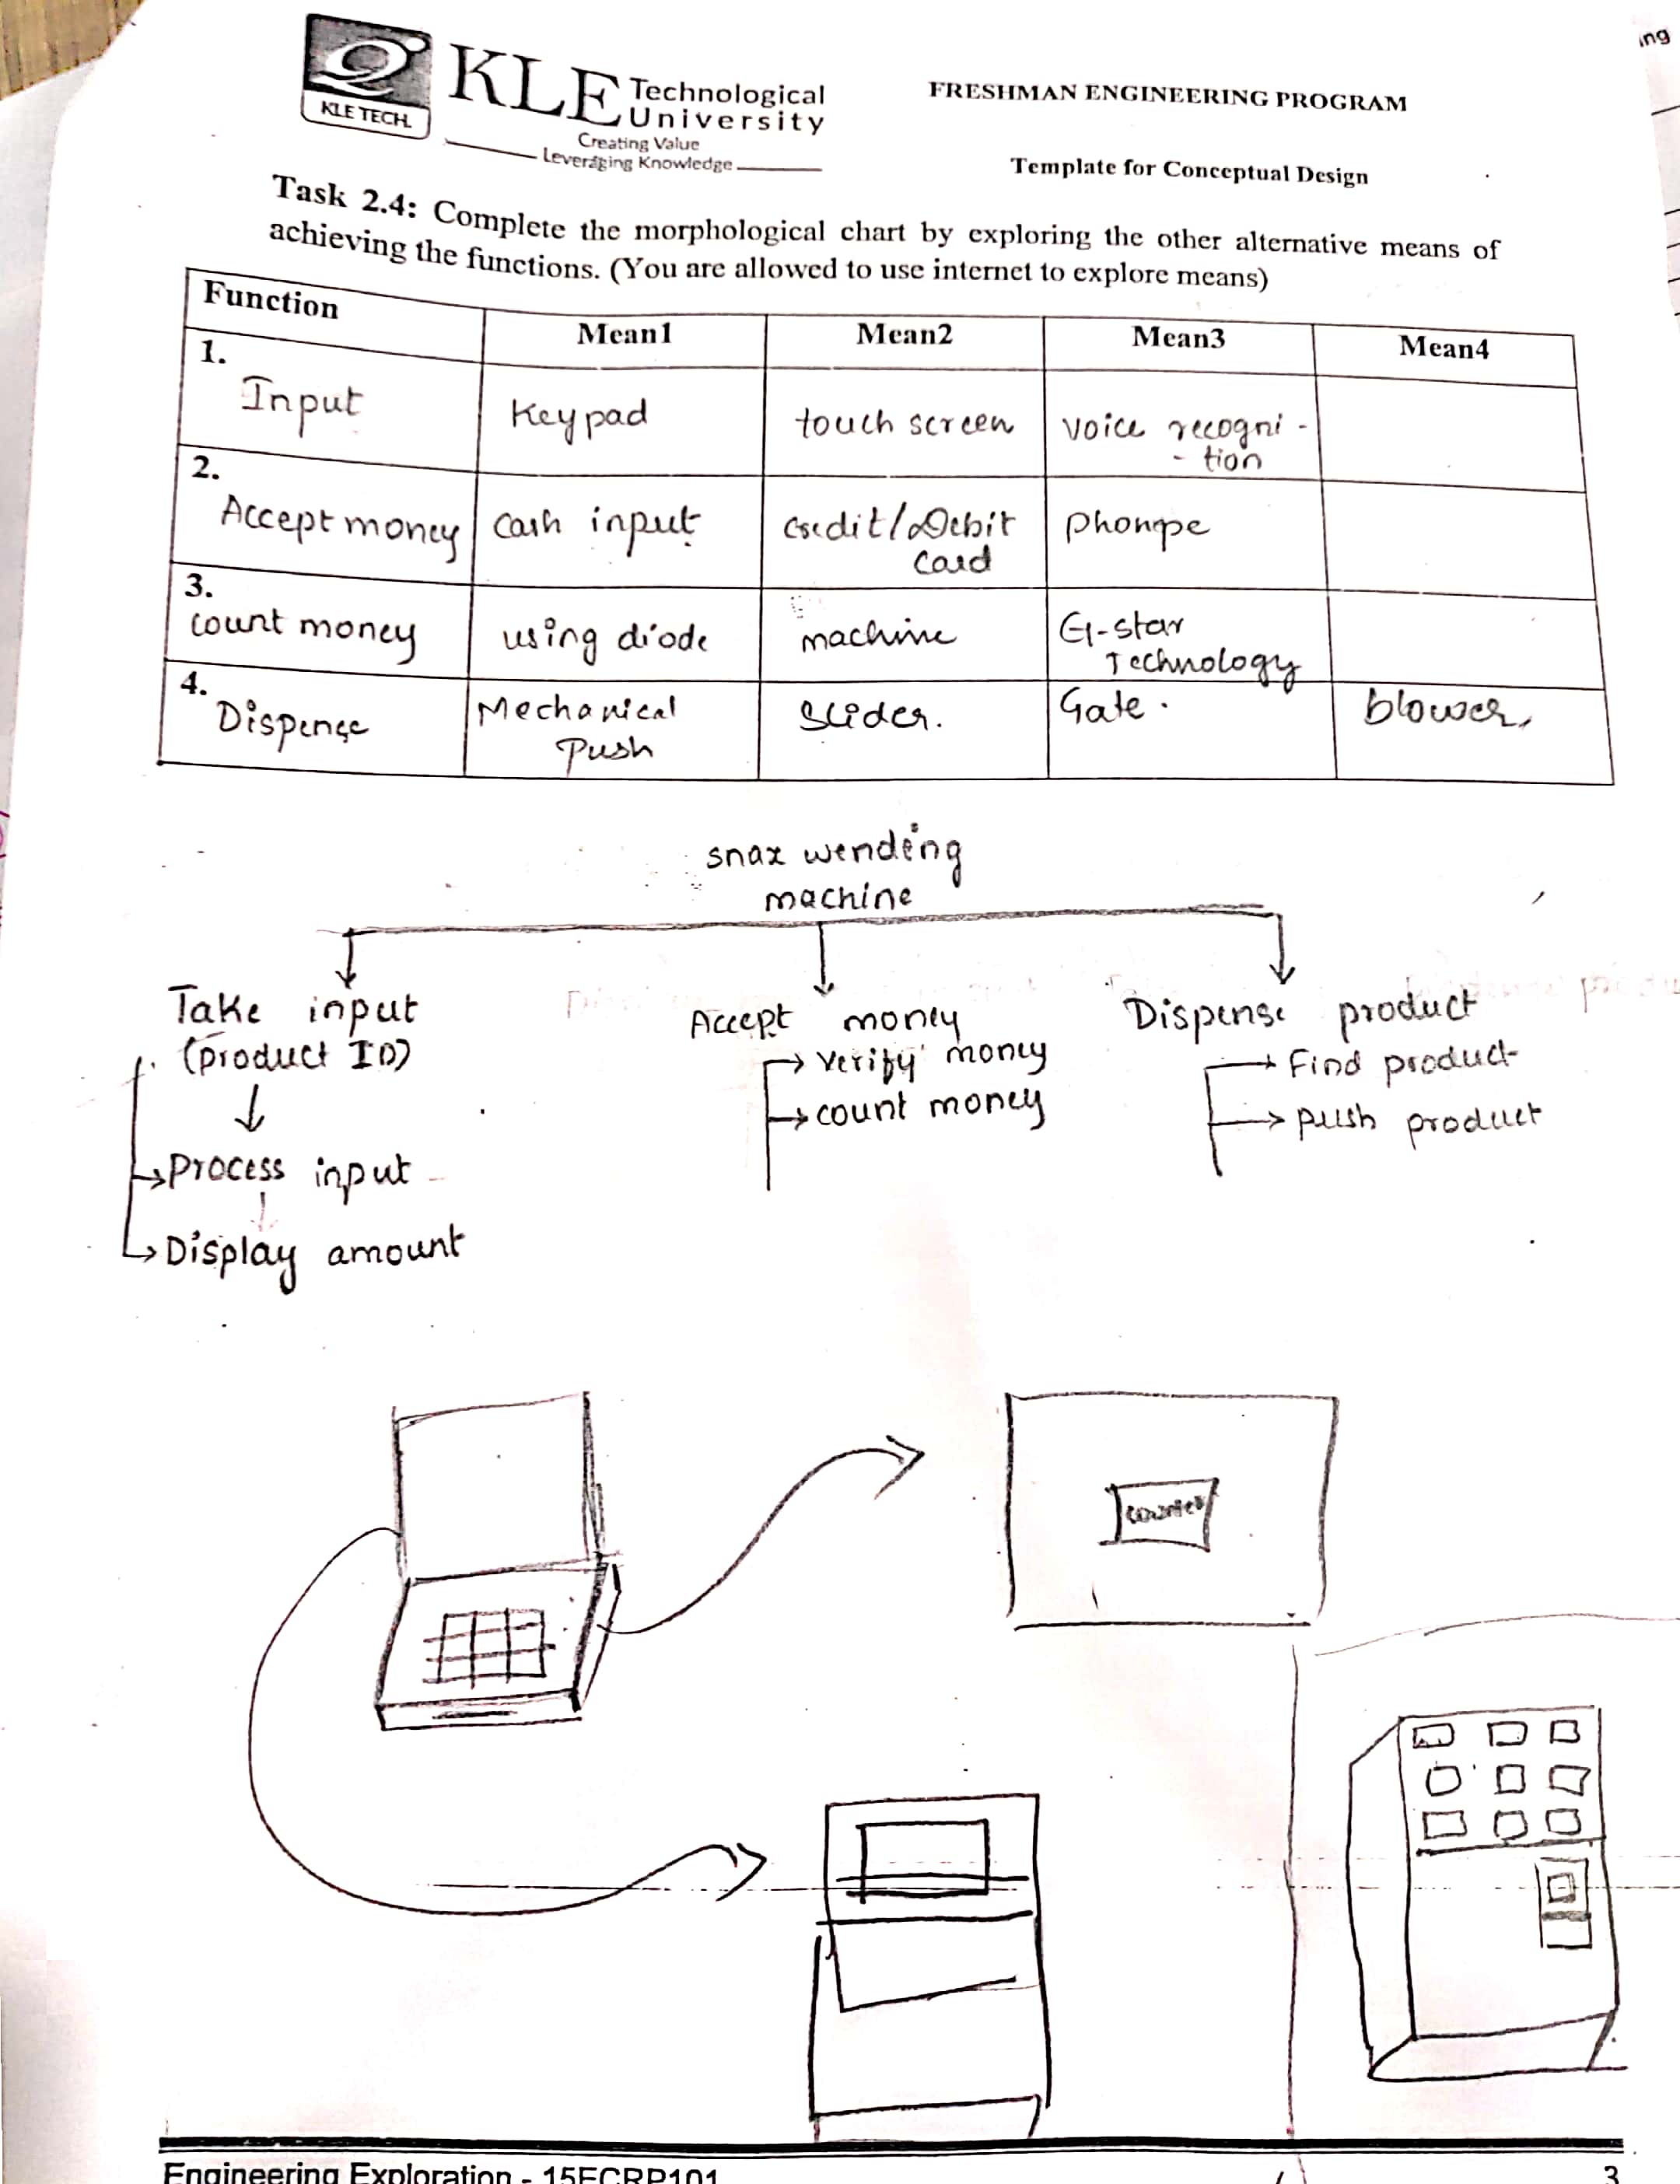 ing
KLE TECH.
KLE Technological
University
Creating Value
Leveraging Knowledge
FRESHMAN ENGINEERING PROGRAM
Template for Conceptual Design
Task 2.4: Complete the morphological chart by exploring the other alternative means of
achieving the functions. (You are allowed to use internet to explore means)
Function Mean1 Mean2 Mean3 Mean4
1.
Input Keypad touch screen voice recogni -
- tion
2.
Accept money cash input credit/Debit Phonpe
card
3.
count money using diode machine G-star
Technology
4.
Dispense Mechanical Slider. Gate. blower,
Push
snax wending
machine
Take input Accept money Dispense product
(product ID) → verify money → Find product
↓ → count money → push product
→ Process input
→ Display amount
counter
Engineering Exploration - 15ECRP101 3